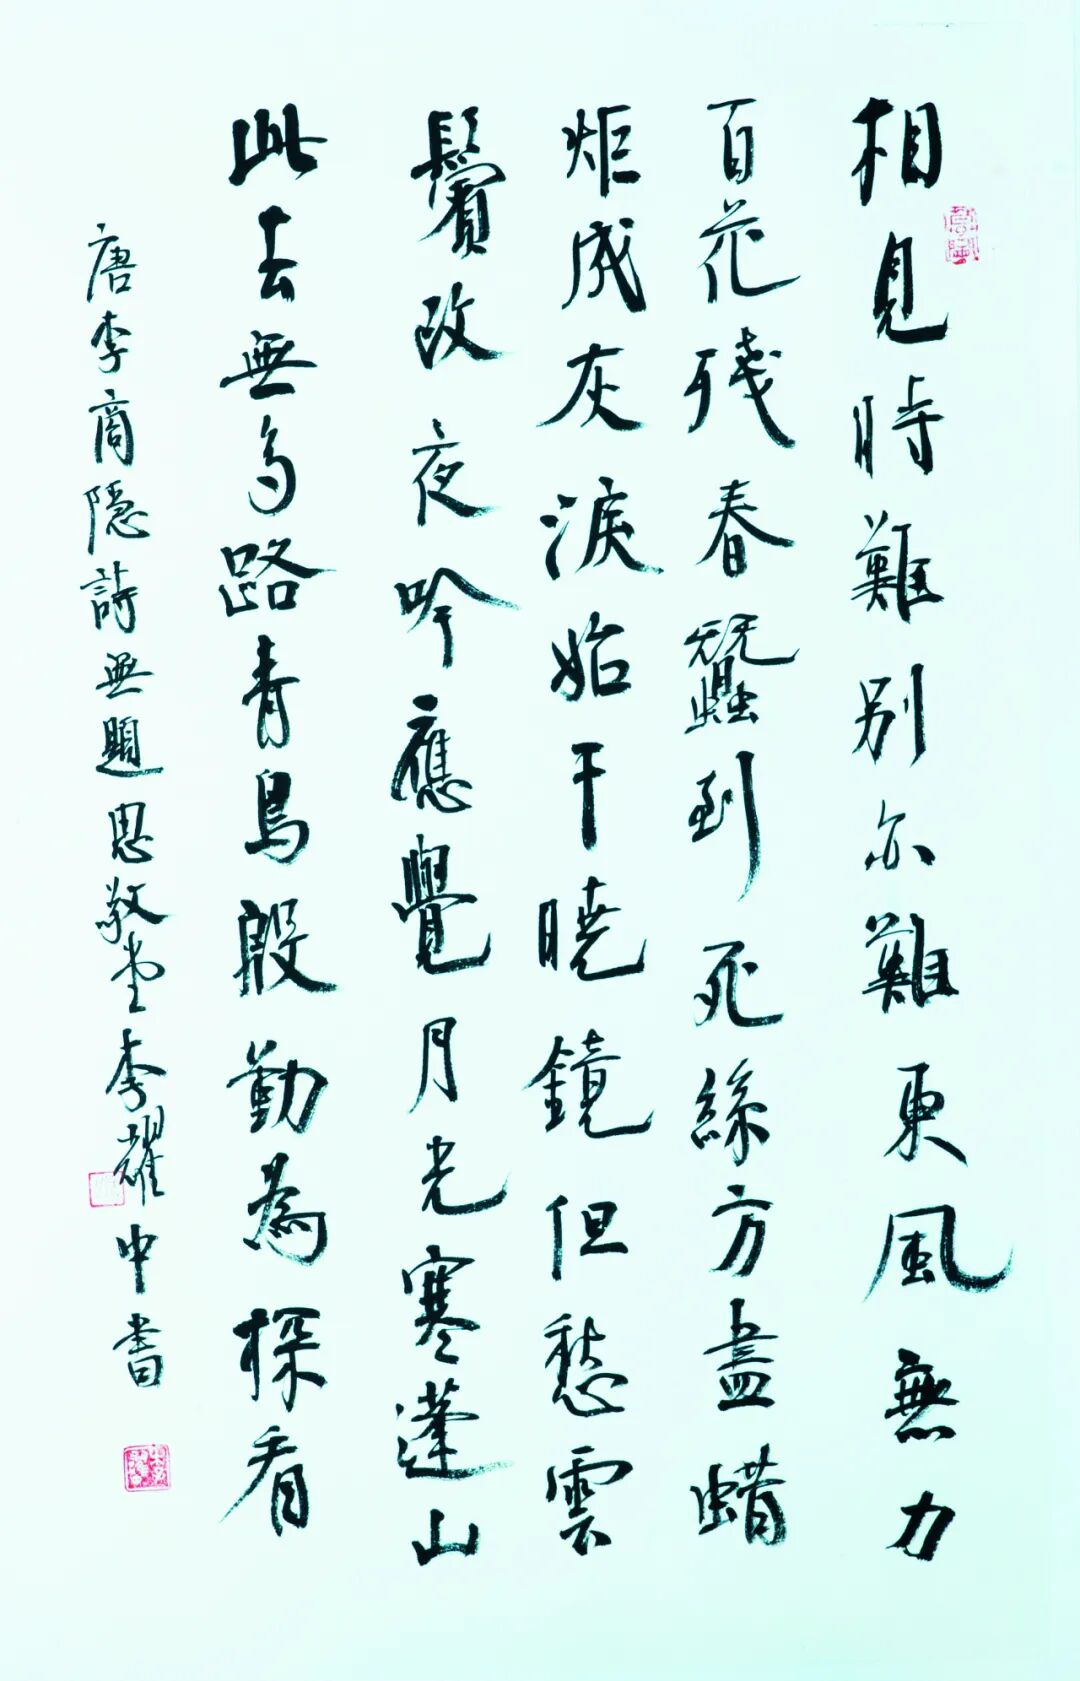 相見時難別亦難東風無力
百花殘春蠶到死絲方盡蜡
炬成灰淚始干曉鏡但愁雲
鬢改夜吟應覺月光寒蓬山
此去無多路青鳥殷勤為探看
唐李商隱詩無題思敬堂李耀申書